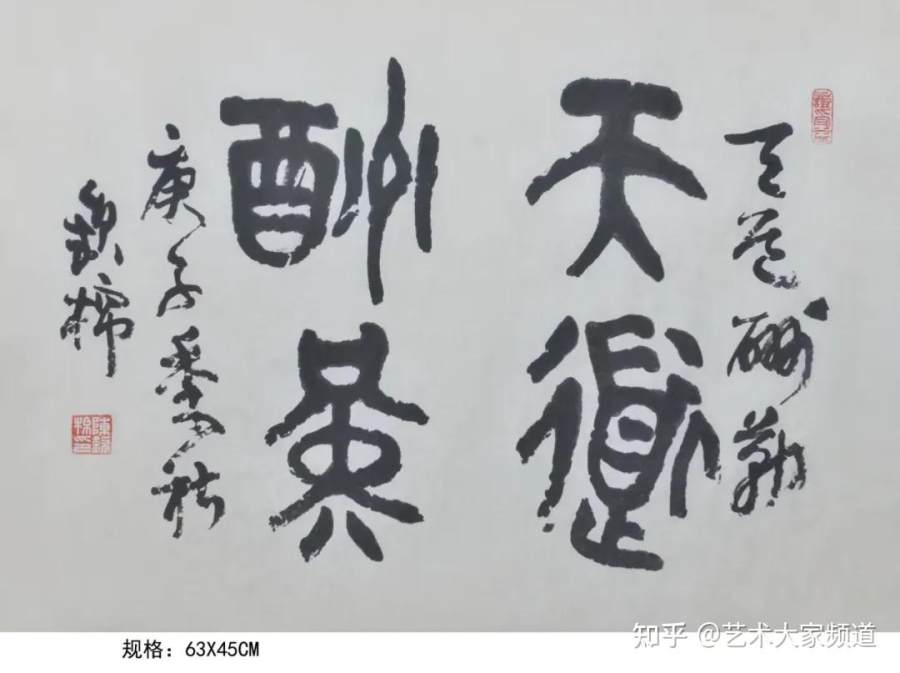 天道酬勤
天道
酬勤
庚子季秋
规格：63X45CM
知乎 @艺术大家频道